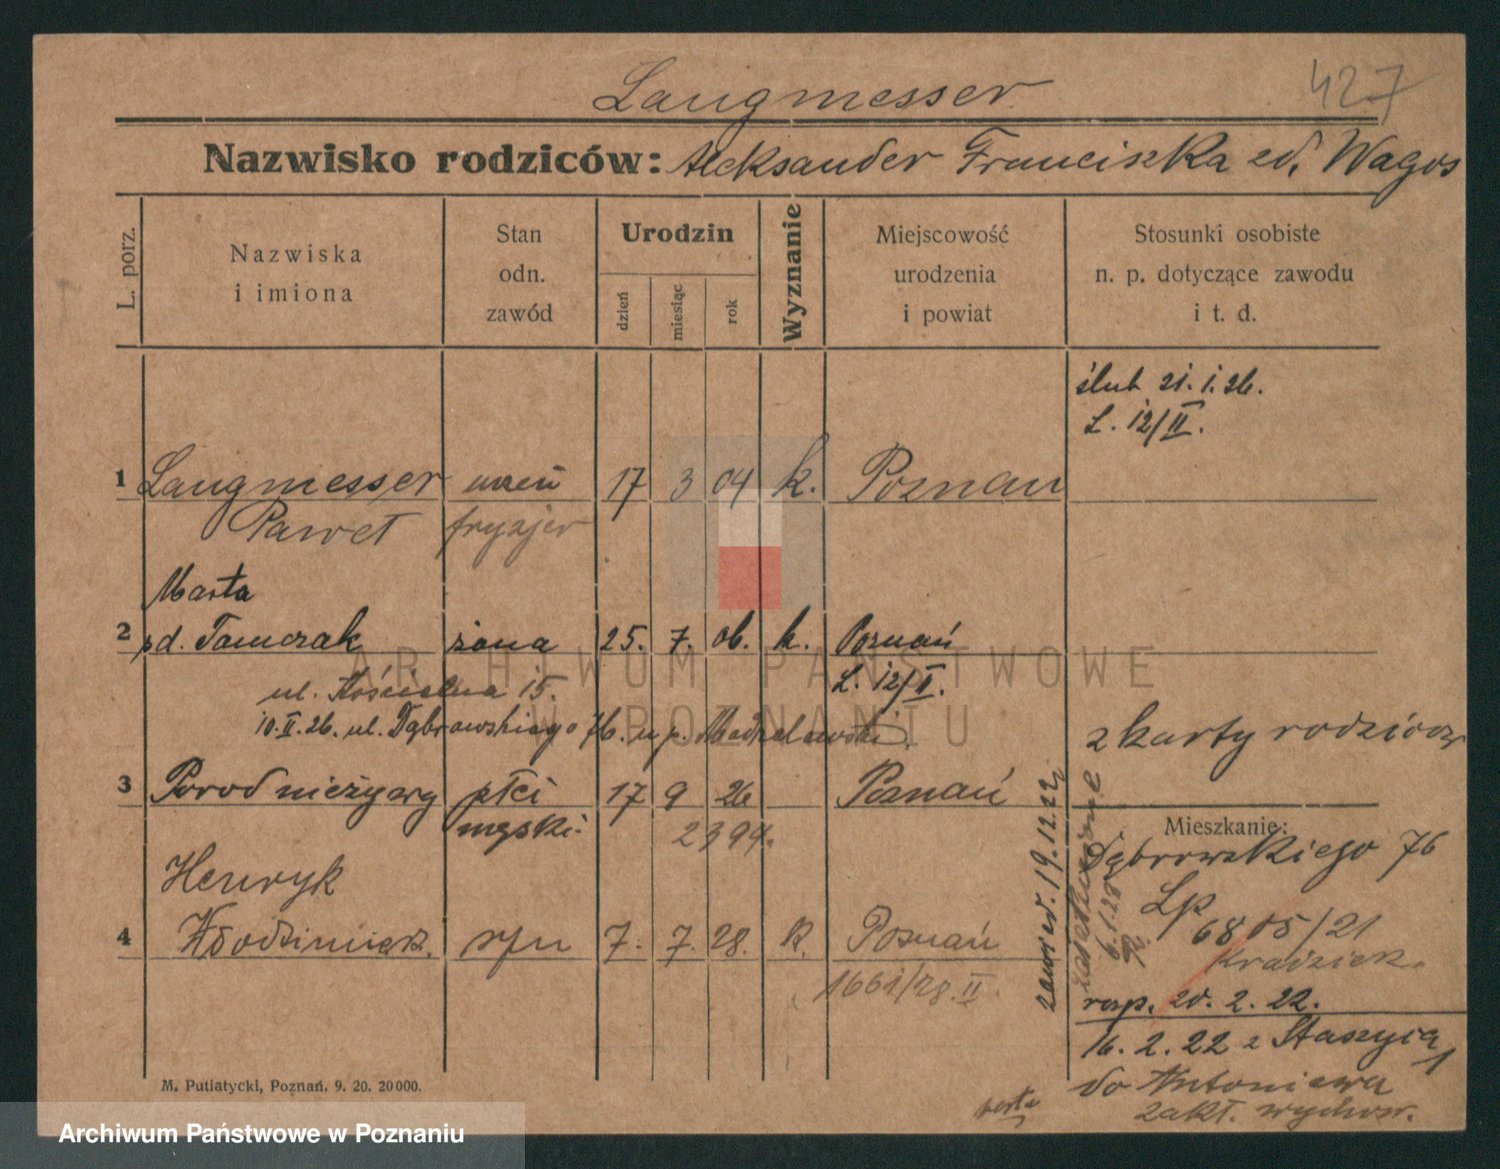 Langmesser
427
Nazwisko rodziców: Aleksander Franciszka zd. Wagos
L. porz.
Nazwiska i imiona
Stan odn. zawód
Urodzin
dzień
miesiąc
rok
Wyznanie
Miejscowość urodzenia i powiat
Stosunki osobiste n. p. dotyczące zawodu i t. d.
ślub 21. I. 26.
L. 12/II.
1 Langmesser uczeń 17 3 04 k. Poznań
Paweł fryzjer
Marta
2 zd. Tomczak żona 25. 7. 06. k. Poznań
ul. Kościelna 15. L. 12/II.
10. II. 26. ul. Dąbrowskiego 76. u p.
z karty rodziców
3 Poród nieżywy płci 17 9 26 Poznań
męski. 2394.
Mieszkanie:
Dąbrowskiego 76
zawiad. 19.12.22
6.1.28
Henryk
Lp
6805/21
4 Włodzimierz syn 7. 7. 28. k. Poznań
1661/28. II
rozp. 20. 2. 22.
16. 2. 22 z Staszyca
do Antoniewa
zakł. wychow.
verte
M. Putiatycki, Poznań. 9. 20. 20000.
ARCHIWUM PAŃSTWOWE
W POZNANIU
Archiwum Państwowe w Poznaniu